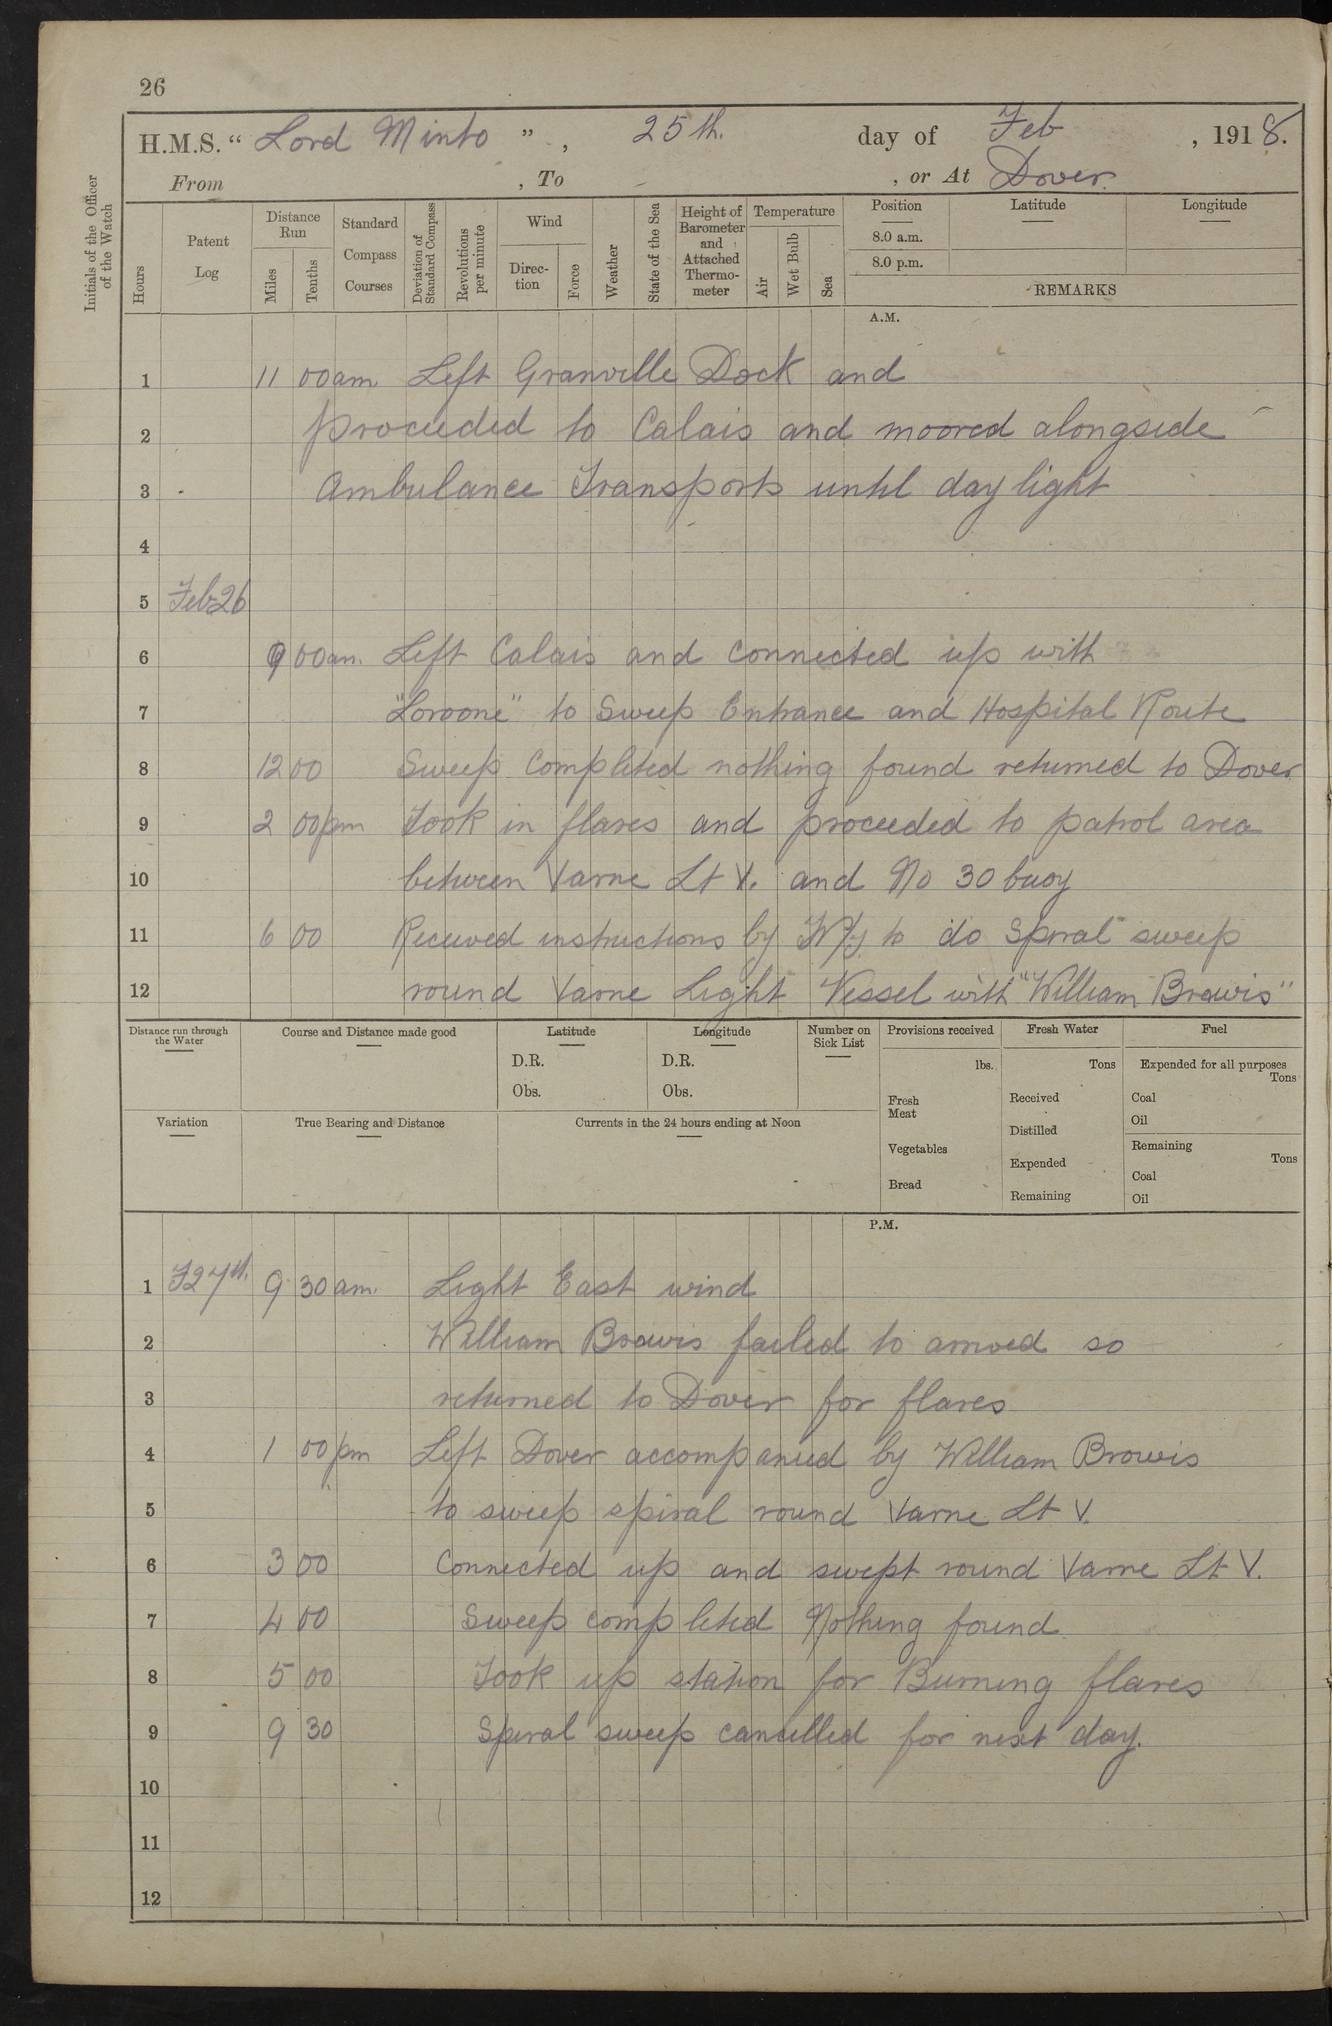 26
H.M.S. "Lord Minto", 25th. day of Feb, 1918.
From , To - , or At Dover.
Initials of the Officer of the Watch
Hours
Patent Log
Distance Run
Miles
Tenths
Standard Compass Courses
Deviation of Standard Compass
Revolutions per minute
Wind
Direction
Force
Weather
State of the Sea
Height of Barometer and Attached Thermometer
Temperature
Air
Wet Bulb
Sea
Position
8.0 a.m.
8.0 p.m.
Latitude
Longitude
REMARKS
A.M.
1 11 00am. Left Granville Dock and
2 proceeded to Calais and moored alongside
3 Ambulance Transports until day light
4
5 Feb 26
6 9 00am. Left Calais and connected up with
7 "Loroone" to Sweep Entrance and Hospital Route
8 12 00 Sweep Completed nothing found returned to Dover
9 2 00pm Took in flares and proceeded to patrol area
10 between Varne Lt V. and No 30 buoy
11 6 00 Received instructions by W/T. to do Spiral sweep
12 round Varne Light Vessel with "William Browis"
Distance run through the Water
Course and Distance made good
Latitude
D.R.
Obs.
Longitude
D.R.
Obs.
Number on Sick List
Provisions received
lbs.
Fresh Meat
Vegetables
Bread
Fresh Water
Tons
Received
Distilled
Expended
Remaining
Fuel
Expended for all purposes
Tons
Coal
Oil
Remaining
Tons
Coal
Oil
Variation
True Bearing and Distance
Currents in the 24 hours ending at Noon
P.M.
1 F27th. 9 30am. Light East wind
2 William Browis failed to arrived so
3 returned to Dover for flares
4 1 00pm Left Dover accompanied by William Browis
5 to sweep spiral round Varne Lt V.
6 3 00 Connected up and swept round Varne Lt V.
7 4 00 Sweep completed Nothing found
8 5 00 Took up station for Burning flares
9 9 30 Spiral sweep cancelled for next day.
10
11
12